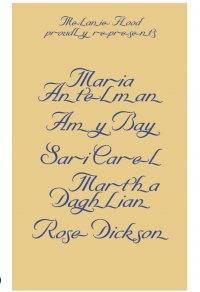 Melanie Flood
proudly represents
Maria
Antelman
Amy Bay
Sari Carel
Martha
Daghlian
Rose Dickson